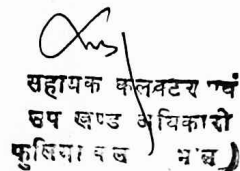 सहायक कलक्टर एवं
उप खण्ड अधिकारी
फुलिया